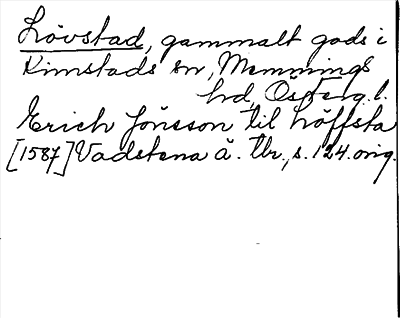 Lövstad, gammalt gods i
Kimstads sn, Memmings
hd, Österg. l.
Erich Jönsson til Löffsta
[1587] Vadstena ä. tbr, s. 124. orig.